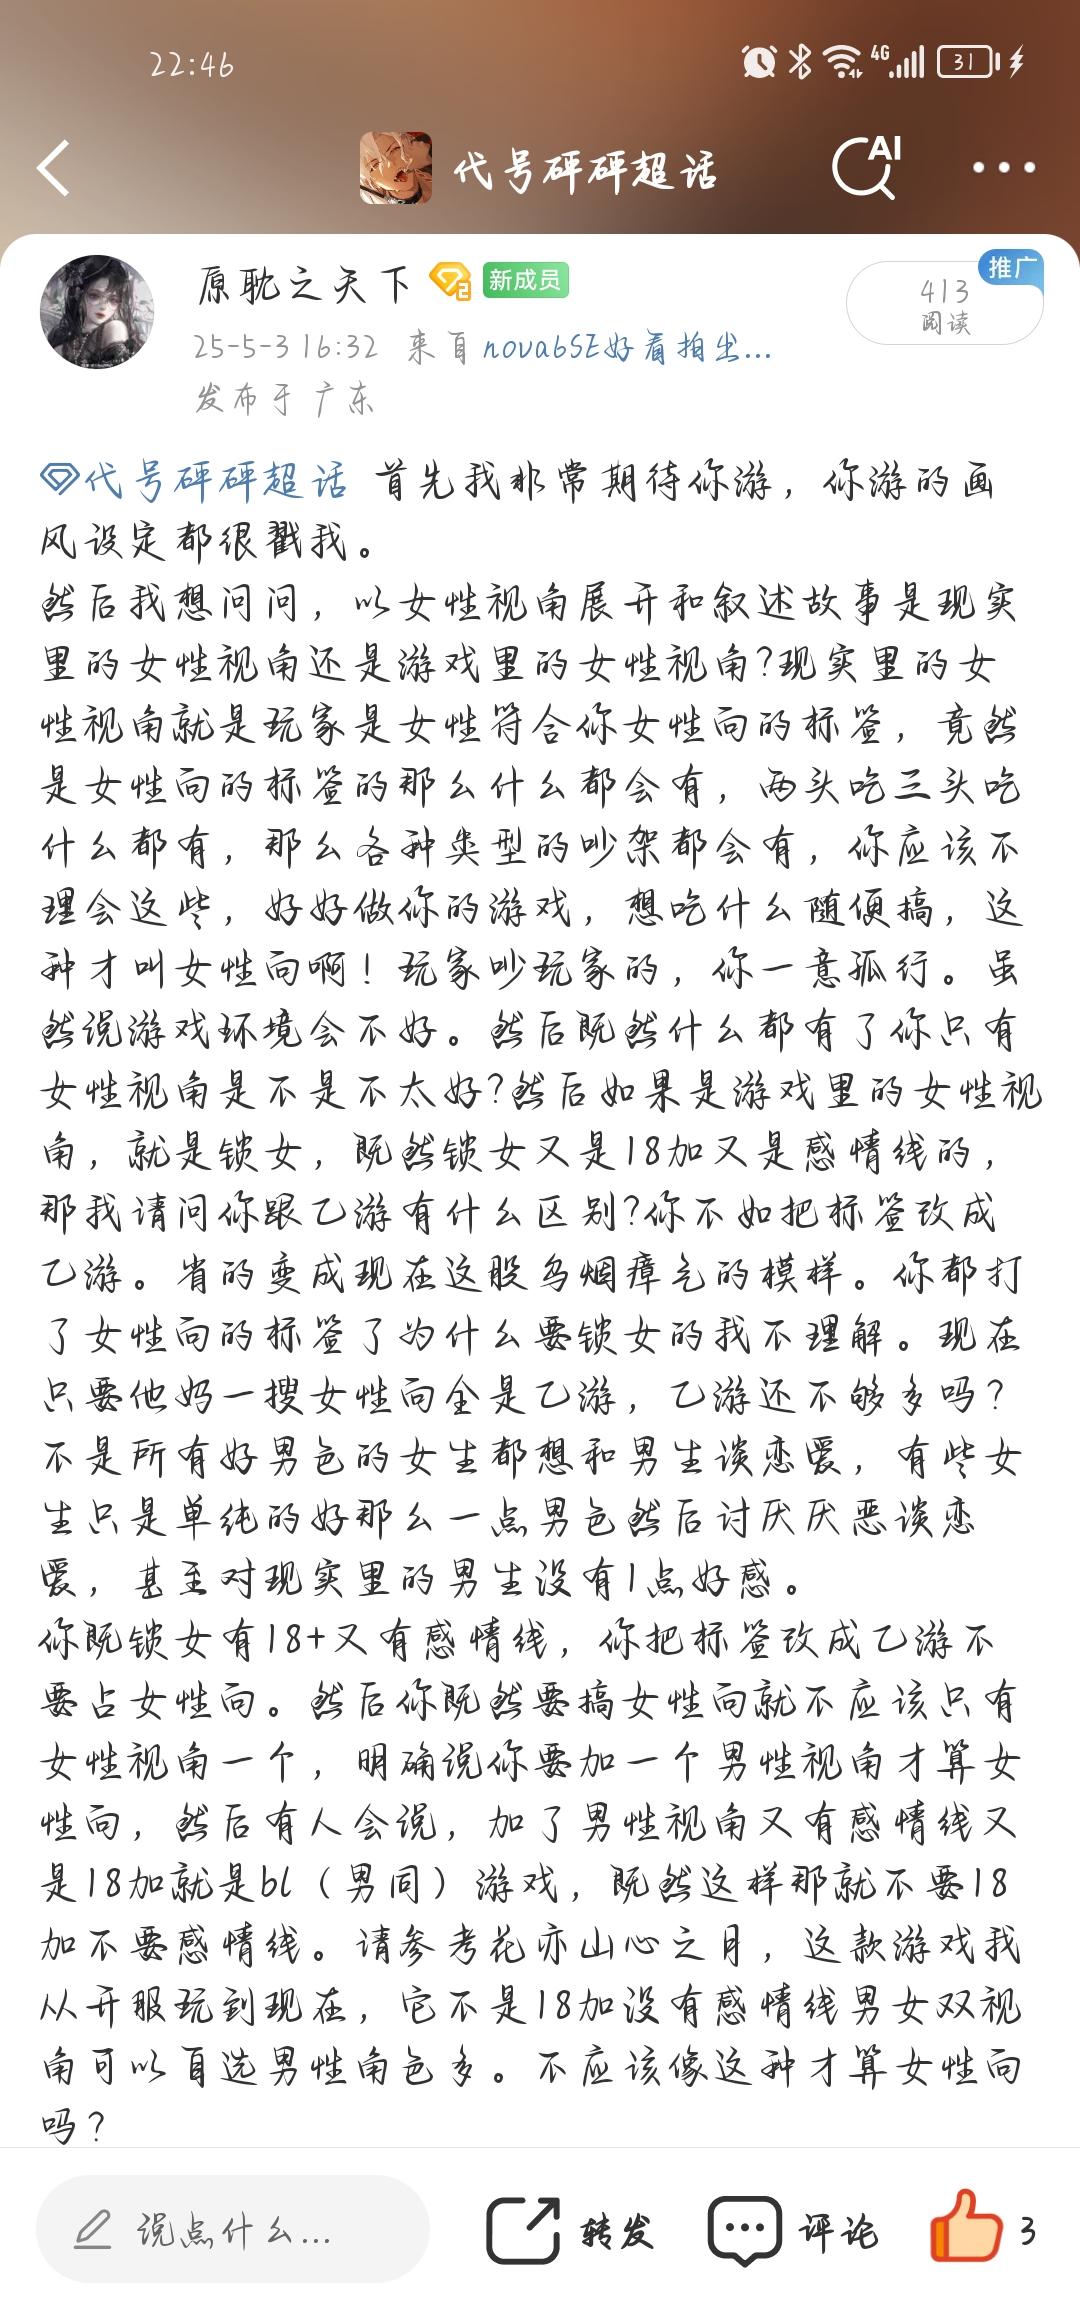 22:46
4G
31
代号砰砰超话
AI
原耽之天下
2
新成员
推广
413
阅读
25-5-3 16:32 来自nova6SE好看拍出...
发布于 广东
代号砰砰超话 首先我非常期待你游，你游的画
风设定都很戳我。
然后我想问问，以女性视角展开和叙述故事是现实
里的女性视角还是游戏里的女性视角?现实里的女
性视角就是玩家是女性符合你女性向的标签，竟然
是女性向的标签的那么什么都会有，两头吃三头吃
什么都有，那么各种类型的吵架都会有，你应该不
理会这些，好好做你的游戏，想吃什么随便搞，这
种才叫女性向啊！玩家吵玩家的，你一意孤行。虽
然说游戏环境会不好。然后既然什么都有了你只有
女性视角是不是不太好?然后如果是游戏里的女性视
角，就是锁女，既然锁女又是18加又是感情线的，
那我请问你跟乙游有什么区别?你不如把标签改成
乙游。省的变成现在这股乌烟瘴气的模样。你都打
了女性向的标签了为什么要锁女的我不理解。现在
只要他妈一搜女性向全是乙游，乙游还不够多吗？
不是所有好男色的女生都想和男生谈恋爱，有些女
生只是单纯的好那么一点男色然后讨厌厌恶谈恋
爱，甚至对现实里的男生没有1点好感。
你既锁女有18+又有感情线，你把标签改成乙游不
要占女性向。然后你既然要搞女性向就不应该只有
女性视角一个，明确说你要加一个男性视角才算女
性向，然后有人会说，加了男性视角又有感情线又
是18加就是bl（男同）游戏，既然这样那就不要18
加不要感情线。请参考花亦山心之月，这款游戏我
从开服玩到现在，它不是18加没有感情线男女双视
角可以自选男性角色多。不应该像这种才算女性向
吗？
说点什么...
转发
评论
3